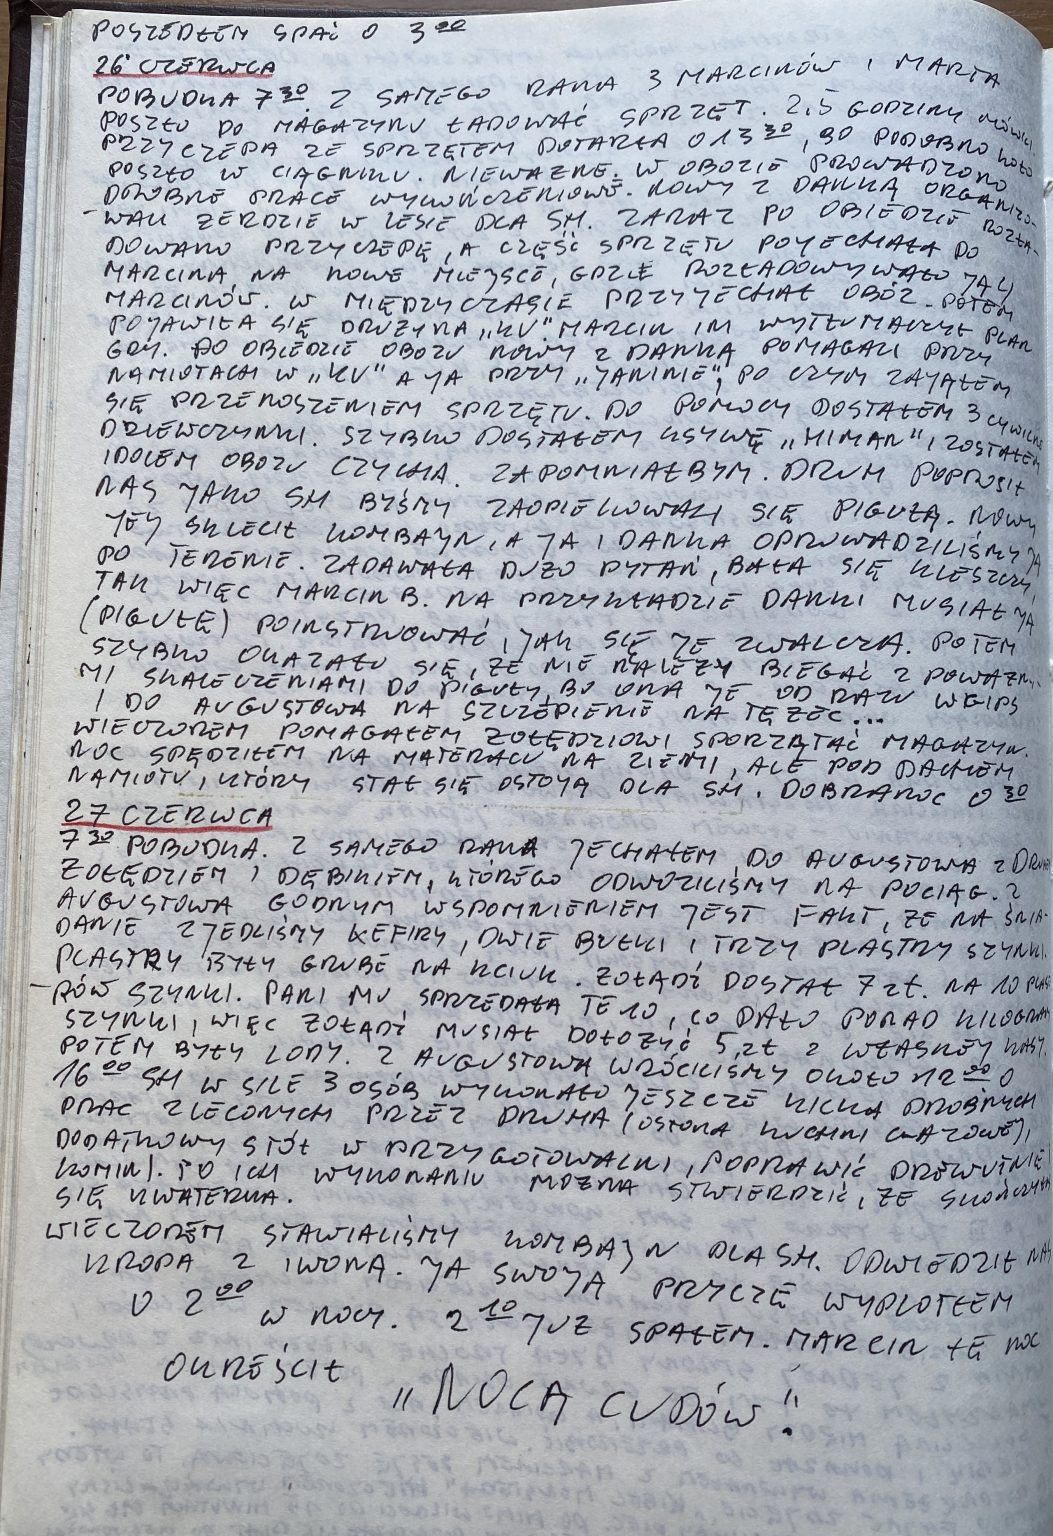 POSZEDŁEM SPAĆ O 3⁰⁰
26 CZERWCA
POBUDKA 7³⁰. Z SAMEGO RANA 3 MARCINÓW I MARTA
POSZŁO DO MAGAZYNU ŁADOWAĆ SPRZĘT. 2,5 GODZINY
PRZYCZEPA ZE SPRZĘTEM DOTARŁA O 13³⁰, BO PODOBNO KOŁO
POSZŁO W CIĄGNIKU. NIEWAŻNE. W OBOZIE PROWADZONO
DROBNE PRACE WYKOŃCZENIOWE. NOWY Z DANKĄ ORGANIZO-
WALI ŻERDZIE W LESIE DLA SM. ZARAZ PO OBIEDZIE ROZŁA-
DOWANO PRZYCZEPĘ, A CZĘŚĆ SPRZĘTU POJECHAŁA DO
MARCINA, NA NOWE MIEJSCE, GDZIE ROZŁADOWYWAŁO JĄ
MARCINÓW. W MIĘDZYCZASIE PRZYJECHAŁ OBÓZ. POTEM
POJAWIŁA SIĘ DRUŻYNA „KU". MARCIN IM WYTŁUMACZYŁ PLAN
GRY. PO OBIEDZIE OBOZU NOWY Z DANKĄ POMAGALI PRZY
NAMIOTACH W „KU" A JA PRZY „JANINIE", PO CZYM ZAJĄŁEM
SIĘ PRZENOSZENIEM SPRZĘTU. DO POMOCY DOSTAŁEM 3 CYWILNE
DZIEWCZYNKI. SZYBKO DOSTAŁEM KSYWĘ „HIMAN" I ZOSTAŁEM
IDOLEM OBOZU CZYCHA. ZAPOMNIAŁBYM. DRUH POPROSIŁ
NAS JAKO SM BYŚMY ZAOPIEKOWALI SIĘ PIGUŁĄ. NOWY
JEJ SKLECIŁ KOMBAJN, A JA I DANKA OPROWADZILIŚMY JĄ
PO TERENIE. ZADAWAŁA DUŻO PYTAŃ, BAŁA SIĘ KLESZCZY,
TAK WIĘC MARCIN B. NA PRZYKŁADZIE DANKI MUSIAŁ JĄ
(PIGUŁĘ) POINSTRUOWAĆ, JAK SIĘ JE ZWALCZA. POTEM
SZYBKO OKAZAŁO SIĘ, ŻE NIE NALEŻY BIEGAĆ Z POWAŻNY-
MI SKALECZENIAMI DO PIGUŁY, BO ONA JE OD RAZU W GIPS
I DO AUGUSTOWA NA SZCZEPIENIE NA TĘŻEC...
WIECZOREM POMAGAŁEM ŻOŁĘDZIOWI SPORZĄTAĆ MAGAZYN.
NOC SPĘDZIŁEM NA MATERACU NA ZIEMI, ALE POD DACHEM
NAMIOTU, KTÓRY STAŁ SIĘ OSTOJĄ DLA SM. DOBRANOC 0³⁰
27 CZERWCA
7³⁰ POBUDKA. Z SAMEGO RANA JECHAŁEM DO AUGUSTOWA Z DRUHEM
ŻOŁĘDZIEM I DĘBIKIEM, KTÓREGO ODWOZILIŚMY NA POCIĄG. Z
AUGUSTOWA GODNYM WSPOMNIENIEM JEST FAKT, ŻE NA ŚNIA-
DANIE ZJEDLIŚMY KEFIRY, DWIE BUŁKI I TRZY PLASTRY SZYNKI.
PLASTRY BYŁY GRUBE NA KCIUK. ŻOŁĄDŹ DOSTAŁ 7 ZŁ. NA 10 PLAST-
RÓW SZYNKI. PANI MU SPRZEDAŁA TE 10, CO DAŁO PONAD KILOGRAM
SZYNKI, WIĘC ŻOŁĄDŹ MUSIAŁ DOŁOŻYĆ 5,ZŁ Z WŁASNEJ KASY.
POTEM BYŁY LODY. Z AUGUSTOWA WRÓCILIŚMY OKOŁO 12⁰⁰ O
16⁰⁰ SM W SILE 3 OSÓB WYKONAŁO JESZCZE KILKA DROBNYCH
PRAC ZLECONYCH PRZEZ DRUHA (OSŁONA KUCHNI GAZOWEJ,
DODATKOWY STÓŁ W PRZYGOTOWALNI, POPRAWIĆ DREWUTNIĘ I
KOMIN). PO ICH WYKONANIU MOŻNA STWIERDZIĆ, ŻE SKOŃCZYŁA
SIĘ KWATERKA.
WIECZOREM STAWIALIŚMY KOMBAJN DLA SM. ODWIEDZIŁ NAS
KROPA Z IWONĄ. JA SWOJĄ PRYCZĘ WYPLOTŁEM
O 2⁰⁰ W NOCY. 2¹⁰ JUŻ SPAŁEM. MARCIN TĘ NOC
OKREŚLIŁ
„NOCĄ CUDÓW"!